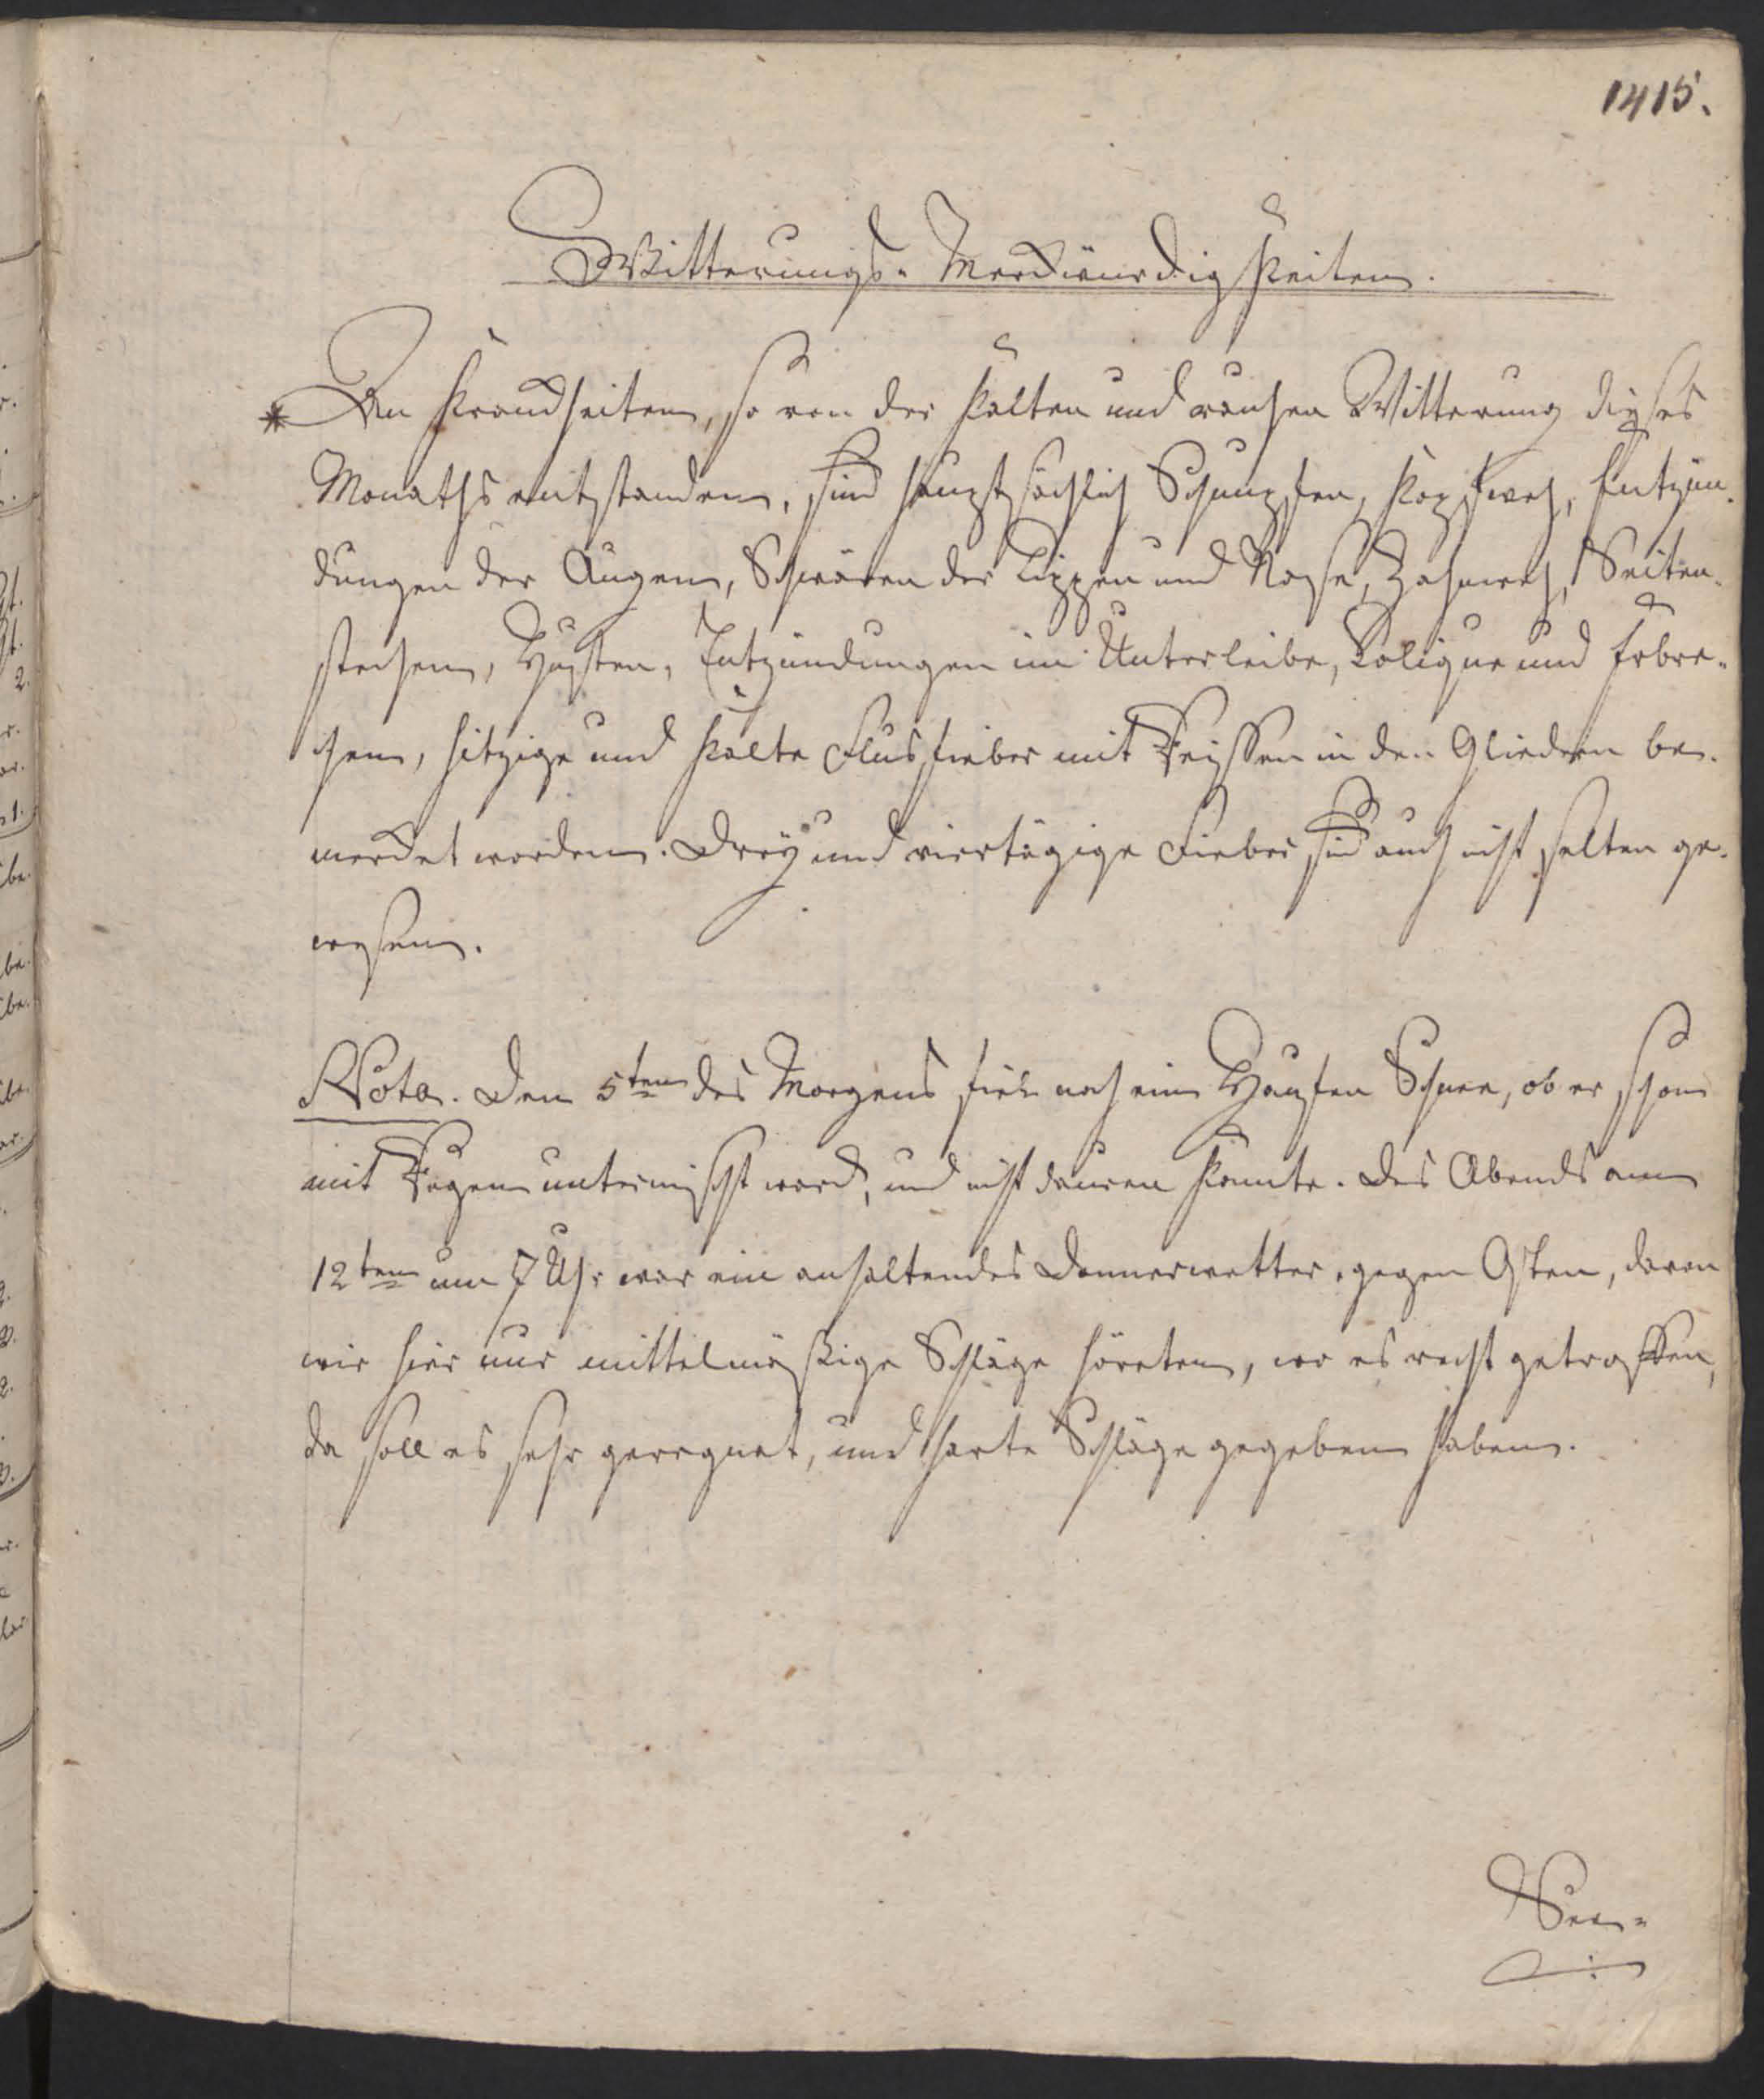 1415.
Witterungs-Merckwürdigkeiten.
* An Kranckheiten, so von der kalten und rauhen Witterung dieses
Monaths entstanden, sind hauptsächlich Schnupfen, Kopfweh, Entzün-
dungen der Augen, Schwären der Lippen und Nase, Zahnweh, Seiten-
stechen, Husten, Entzündungen im Unterleibe, Colique und Erbre-
chen, hitzige und kalte Flusfieber mit Reissen in den Gliedern be-
merckt worden. Drey und viertägige Fieber sind auch nicht selten ge-
wesen.
Nota. Den 5ten des Morgens fiel noch ein Haufen Schnee, ob er schon
mit Regen untermischt ward, und nicht dauren konnte. Des Abends am
12ten um 7 Uhr war ein anhaltendes Donnerwetter gegen Osten, davon
wir hier nur mittelmäßige Schläge höreten, wo es recht getroffen,
da soll es sehr geregnet, und harte Schläge gegeben haben.